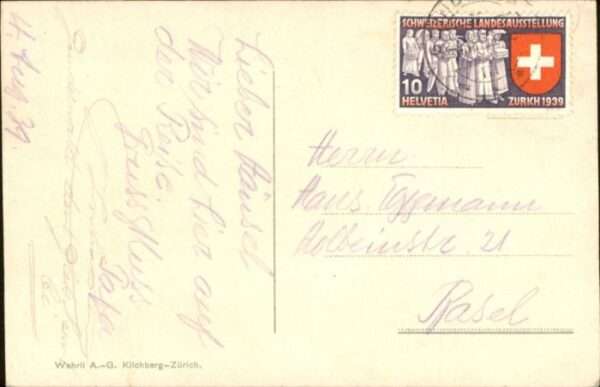 SCHWEIZERISCHE LANDESAUSSTELLUNG
10
HELVETIA
ZÜRICH 1939
4. Aug 39.
Lieber Hänsel
Wir sind hier auf
der Reise
Gruss & Kuss
Papa
Herrn
Hans Eggemann
Holbeinstr. 21
Basel
Wehrli A.-G. Kilchberg-Zürich.